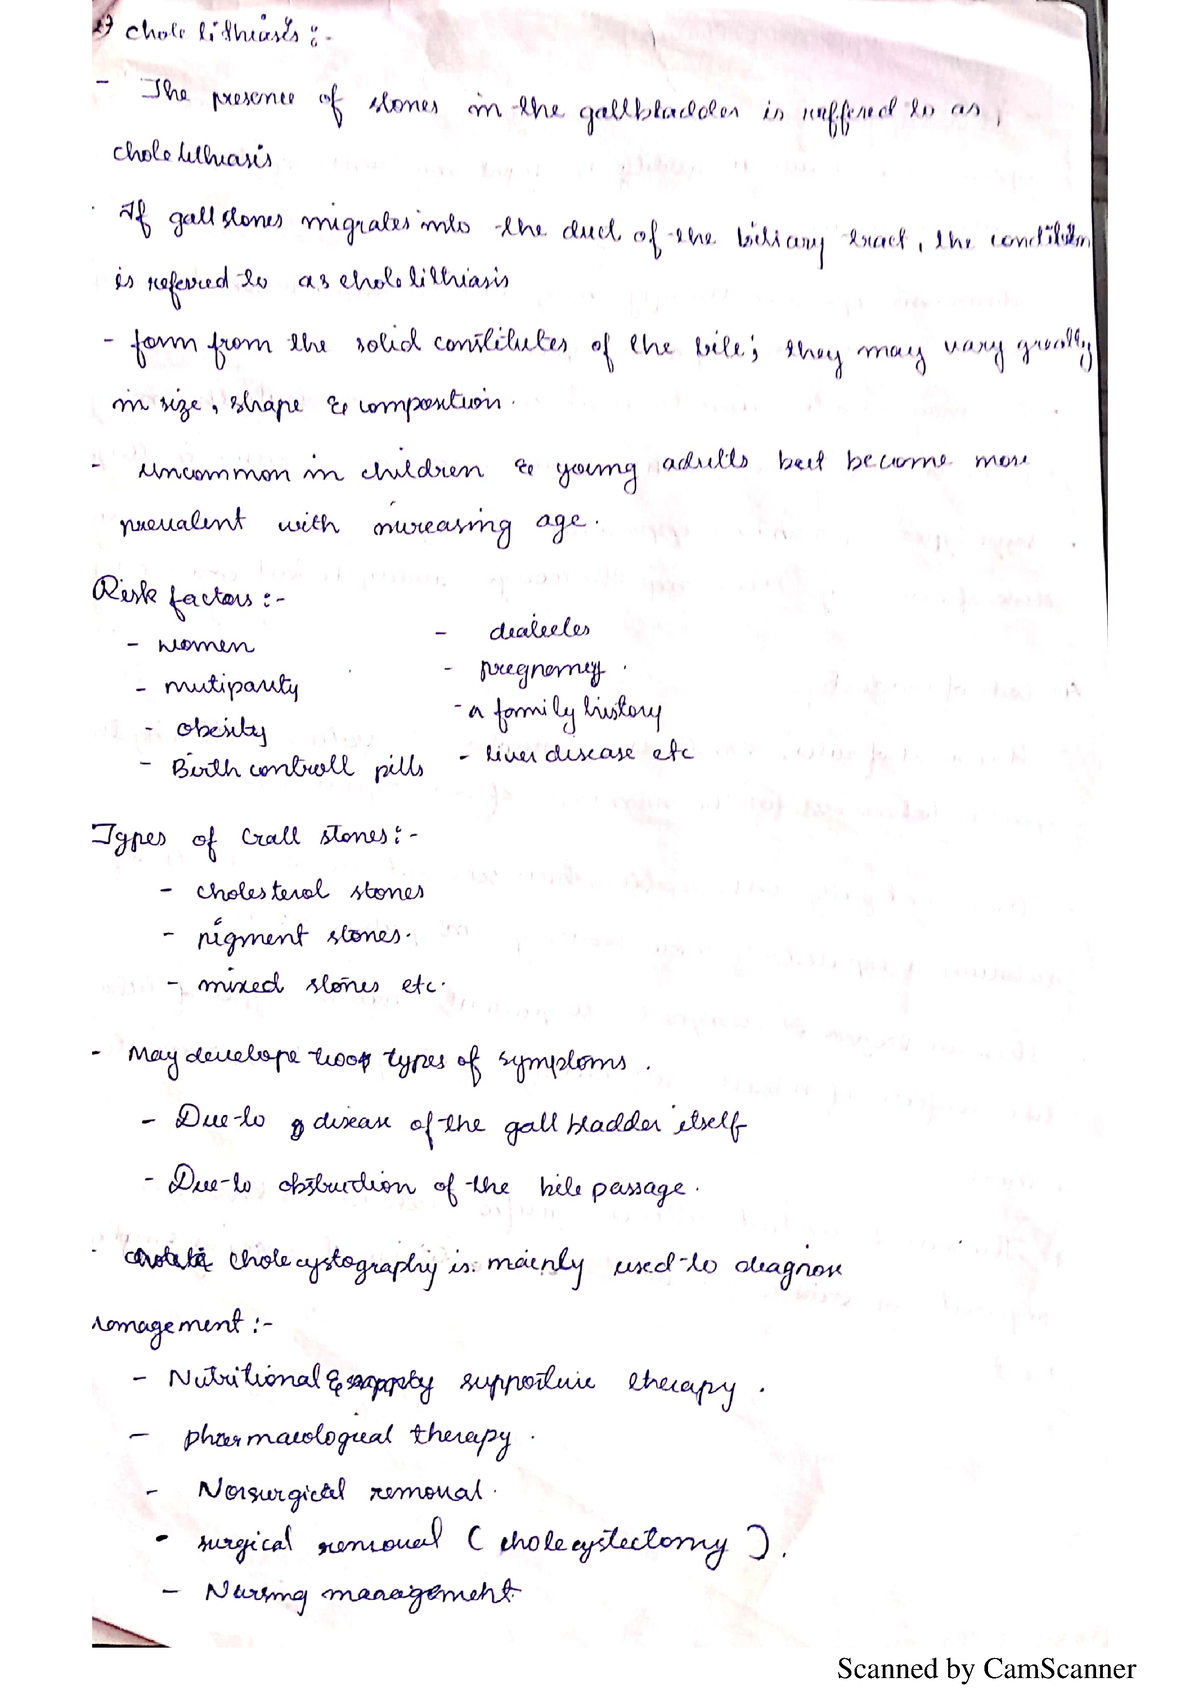 27 chole lithiasis :-
- The presence of stones in the gallbladder is reffered to as,
cholelithiasis
· If gall stones migrates into the duct of the biliary tract, the condition
is referred to as cholelithiasis
- form from the solid constitutes of the bile; they may vary greatly
in size, shape & composition.
- uncommon in children & young adults but become more
prevalent with increasing age.
Risk factors :-
- women
- mutiparity
- obesity
- Birth controll pills
- diabetes
- pregnancy.
- a family history
- liver disease etc
Types of Gall stones :-
- cholesterol stones
- pigment stones.
- mixed stones etc.
- May develope two types of symptoms.
- Due to disease of the gall bladder itself
- Due to obstruction of the bile passage.
· cholecystography is mainly used to diagnose
management :-
- Nutritional & supportive therapy.
- pharmacological therapy.
- Nonsurgical removal.
- surgical removal ( cholecystectomy ).
- Nursing management
Scanned by CamScanner